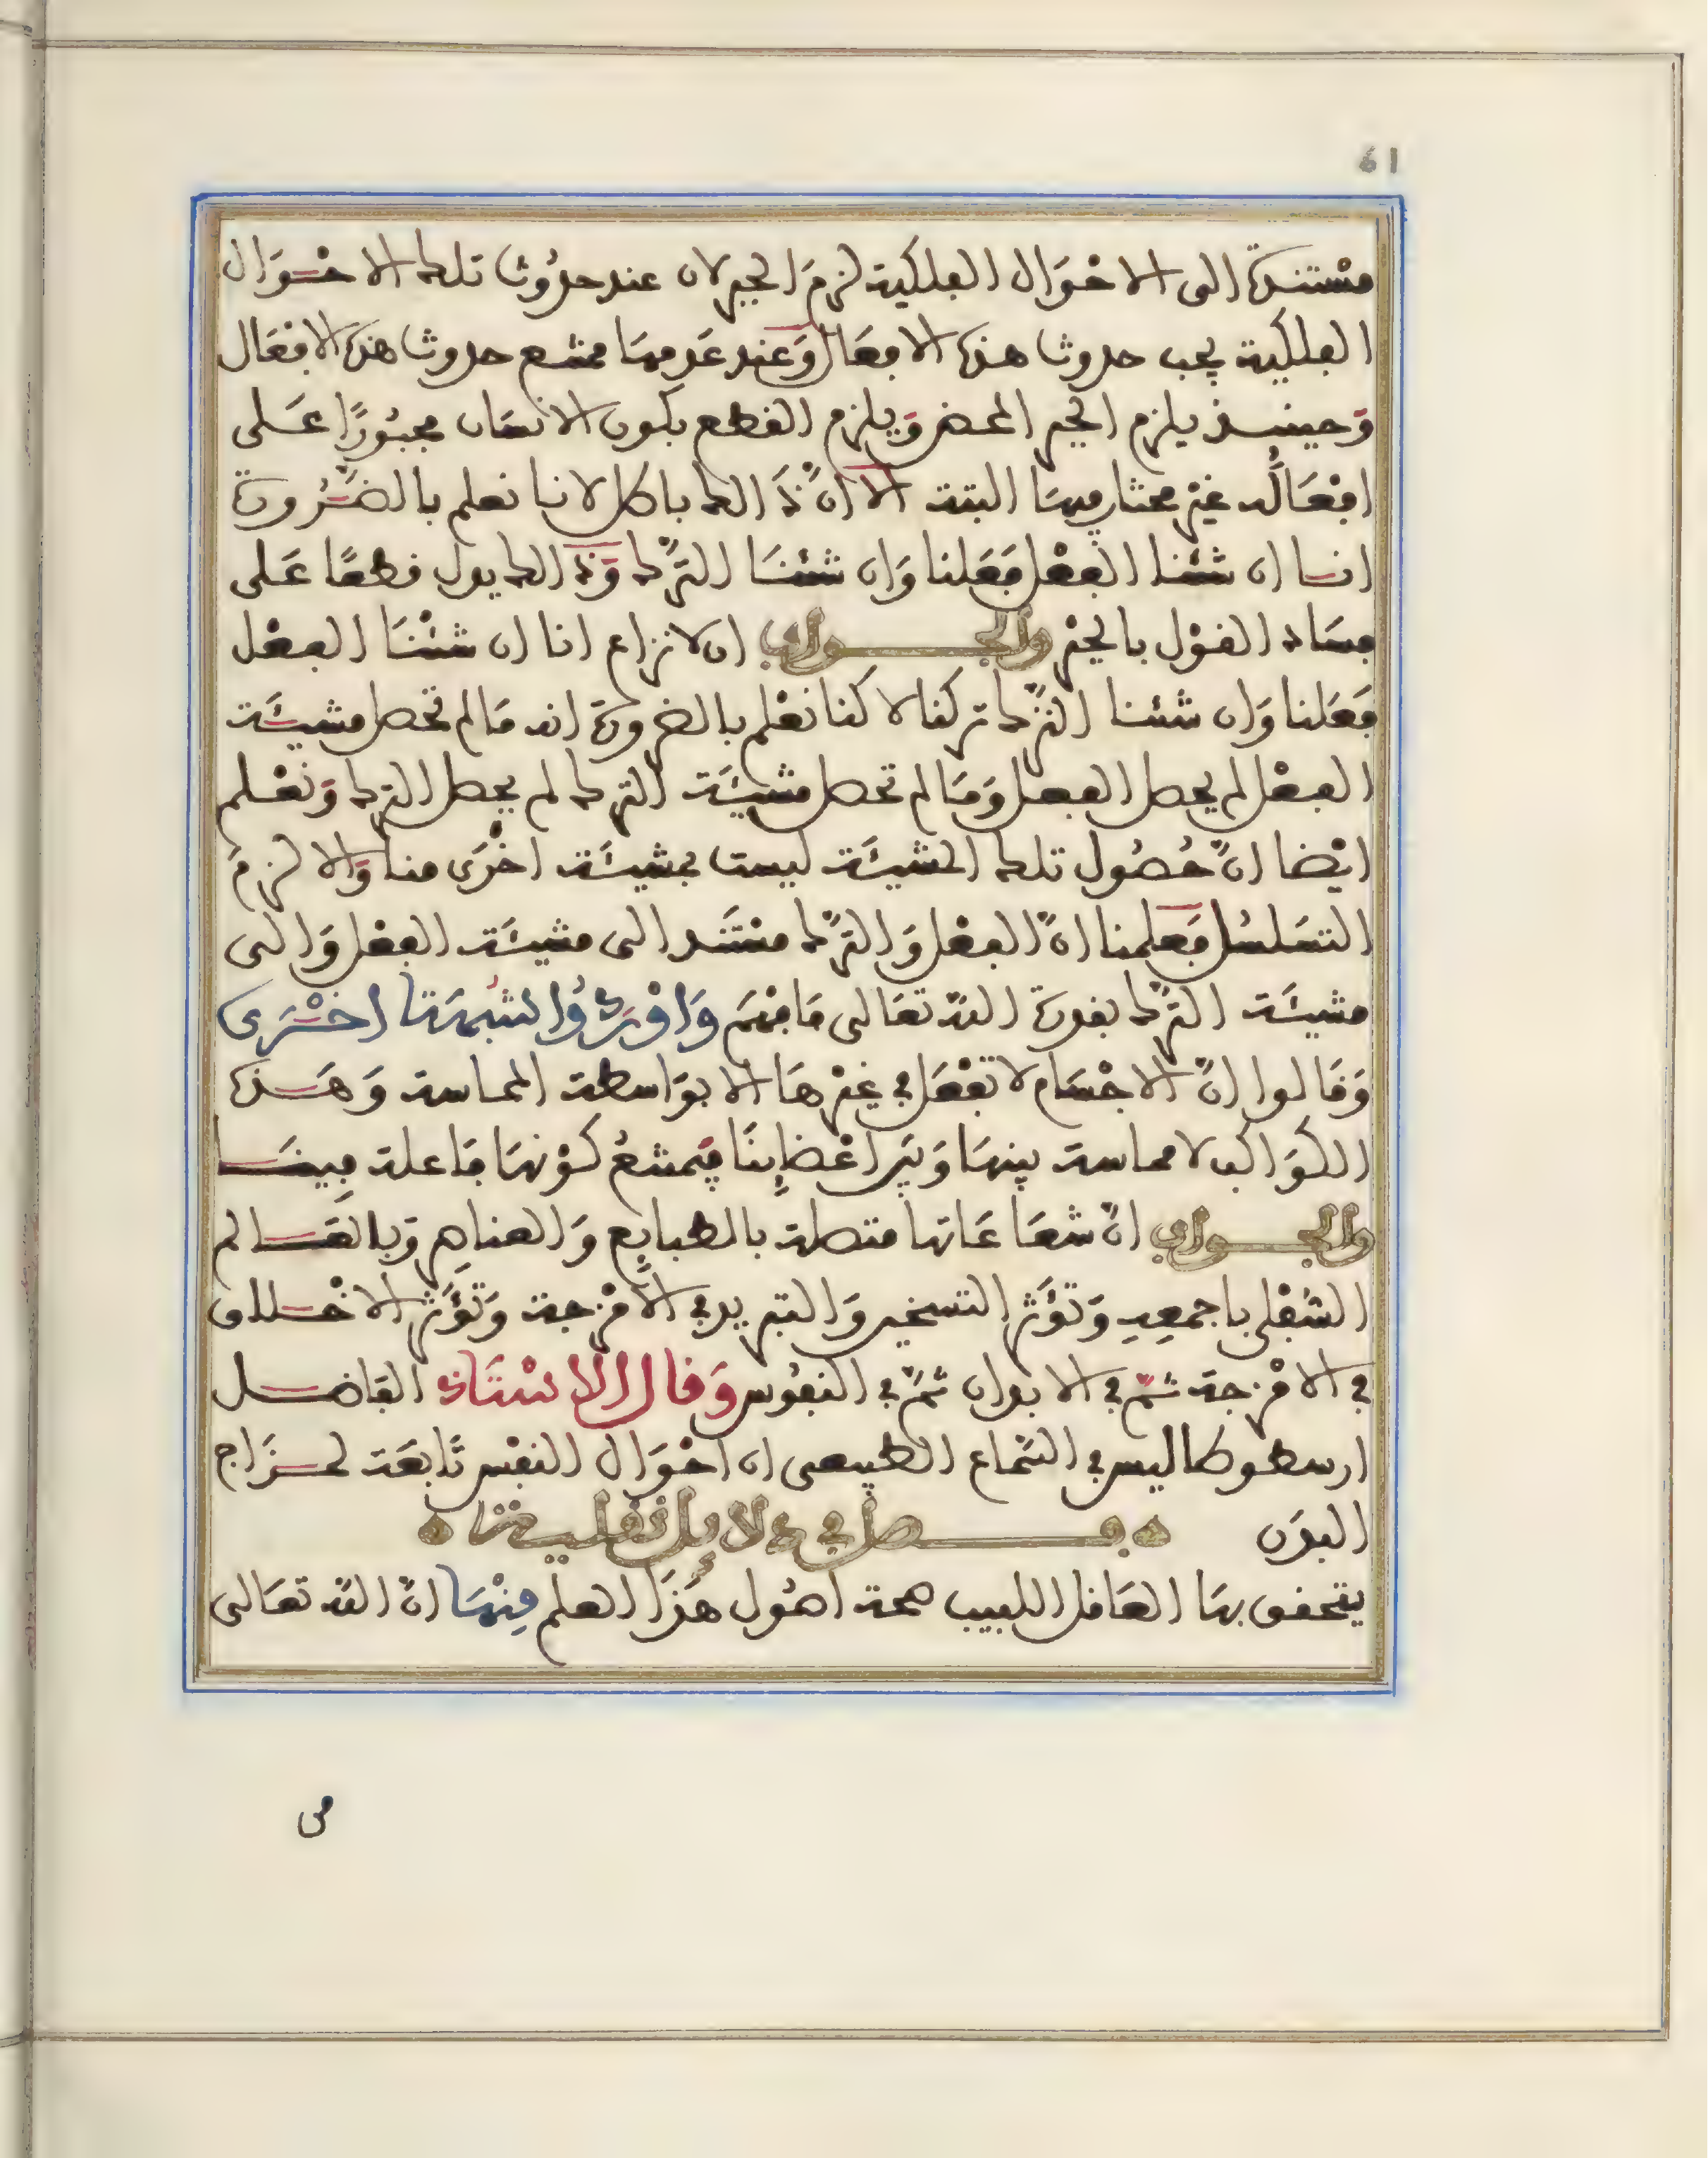 61
مستندة الى الاحْوَال الفلكية لزمَ الجبر لان عند حدُوث تلك الاحْوَال
الفلكية يجب حدوث هذه الافعَال وَعند عَدمهَا يمتنع حدوث هذه الافعَال
وَحينئذ يلزم الجبر المحض وَيلزم القطع بكون الانسَان مجبُورًا عَلى
افعَاله غيْر مختار فيهَا البتة الا انّ ذَالك باطل لاننا نعلم بالضّرُورة
اننا ان شئنا الفعْل فَعَلنا وَان شئنَا الترْك وَذالك يدل قطعًا عَلى
فسَاد القوْل بالجبْر وَالجواب ان لا نزاع انا ان شئْنَا الفعْل
فَعَلنا وَان شئنا الترْك تركنا لاكنا نعْلم بالضرورة انه مَا لم تحصل مشيئَة
الفعْل لم يحصل الفعل وَمَا لم تحصل مشيئَة الترك لم يحصل الترك وَنعْلم
ايْضا انّ حُصُول تلك المشيئَة ليست بمشيئَة اخْرَى منا وَالا لزمَ
التسَلسُل فَعلمنا انّ الفعْل وَالترْك مسْتَند الى مشيئَة الفعْل وَالى
مشيئَة الترْك بقدرة اللّه تعَالى فَافْهَم وَاوْرَدُوا شُبهَة اخْرَى
وَقَالوا انّ الاجْسَام لا تفْعَل في غيْرهَا الا بوَاسطة المماسة وَهَذه
الكوَاكب لا مماسة بينهَا وَبَيْر اعْضَائنَا فَيمتنعُ كوْنهَا فَاعلة فِينَا
وَالجواب انّ شعَاعَاتها متصلة بالطبايع وَالعناصِر وَبالعَالم
السُفْلى باجمعِهِ وَتؤَثر التسخير وَالتبريد في الامْزجة وَتؤَثر الاخْلاق
في الامْزجة ثمّ في الابدان ثمّ في النفُوس وَقال الاسْتَاذ الفَاضل
ارسطوطاليس في السّماع الطبيعى ان احْوَال النفْس تَابعَة لمزَاج
البدَن فصل في دلايل نقلية
يتحقق بهَا العَاقل اللبيب صحة اصُول هَذَا العلم مِنْهَا انّ اللّه تعَالى
من